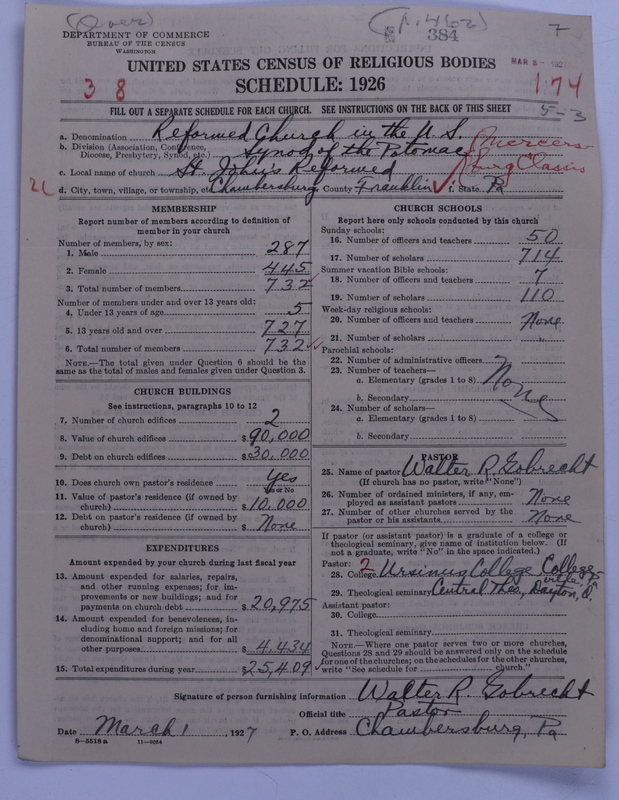 (Over)
(p. 462)
384
7
DEPARTMENT OF COMMERCE
BUREAU OF THE CENSUS
WASHINGTON
UNITED STATES CENSUS OF RELIGIOUS BODIES
MAR 8
SCHEDULE: 1926
3 8
1-74
FILL OUT A SEPARATE SCHEDULE FOR EACH CHURCH. SEE INSTRUCTIONS ON THE BACK OF THIS SHEET
5-3
a. Denomination Reformed Church in the U.S.
b. Division (Association, Conference, Diocese, Presbytery, Synod, etc.) Synod of the Potomac
Mercersburg Classis
c. Local name of church St. John's Reformed
d. City, town, village, or township, etc. Chambersburg County Franklin f. State Pa
MEMBERSHIP
Report number of members according to definition of
member in your church
Number of members, by sex:
1. Male 287
2. Female 445
3. Total number of members 732
Number of members under and over 13 years old:
4. Under 13 years of age 5
5. 13 years old and over 727
6. Total number of members 732
NOTE.—The total given under Question 6 should be the
same as the total of males and females given under Question 3.
CHURCH BUILDINGS
See instructions, paragraphs 10 to 12
7. Number of church edifices 2
8. Value of church edifices $90,000
9. Debt on church edifices $30,000
10. Does church own pastor's residence Yes
Yes or No
11. Value of pastor's residence (if owned by
church) $10,000
12. Debt on pastor's residence (if owned by
church) $None
EXPENDITURES
Amount expended by your church during last fiscal year
13. Amount expended for salaries, repairs,
and other running expenses; for im-
provements or new buildings; and for
payments on church debt $20,975
14. Amount expended for benevolences, in-
cluding home and foreign missions; for
denominational support; and for all
other purposes $4,434
15. Total expenditures during year $25,409
CHURCH SCHOOLS
Report here only schools conducted by this church
Sunday schools:
16. Number of officers and teachers 50
17. Number of scholars 714
Summer vacation Bible schools:
18. Number of officers and teachers 7
19. Number of scholars 110
Week-day religious schools:
20. Number of officers and teachers None
21. Number of scholars "
Parochial schools:
22. Number of administrative officers
23. Number of teachers—
a. Elementary (grades 1 to 8) None
b. Secondary
24. Number of scholars—
a. Elementary (grades 1 to 8)
b. Secondary
PASTOR
25. Name of pastor Walter R. Gobrecht
(If church has no pastor, write "None")
26. Number of ordained ministers, if any, em-
ployed as assistant pastors None
27. Number of other churches served by the
pastor or his assistants None
If pastor (or assistant pastor) is a graduate of a college or
theological seminary, give name of institution below. (If
not a graduate, write "No" in the space indicated.)
Pastor: 2
28. College Ursinus College Collegeville, Pa.
29. Theological seminary Central Theo., Dayton, O.
Assistant pastor:
30. College
31. Theological seminary
NOTE.—Where one pastor serves two or more churches,
Questions 28 and 29 should be answered only on the schedule
for one of the churches; on the schedules for the other churches,
write "See schedule for church."
Signature of person furnishing information Walter R. Gobrecht
Official title Pastor
Date March 1, 1927 P. O. Address Chambersburg, Pa
8—5518 a 11—9054